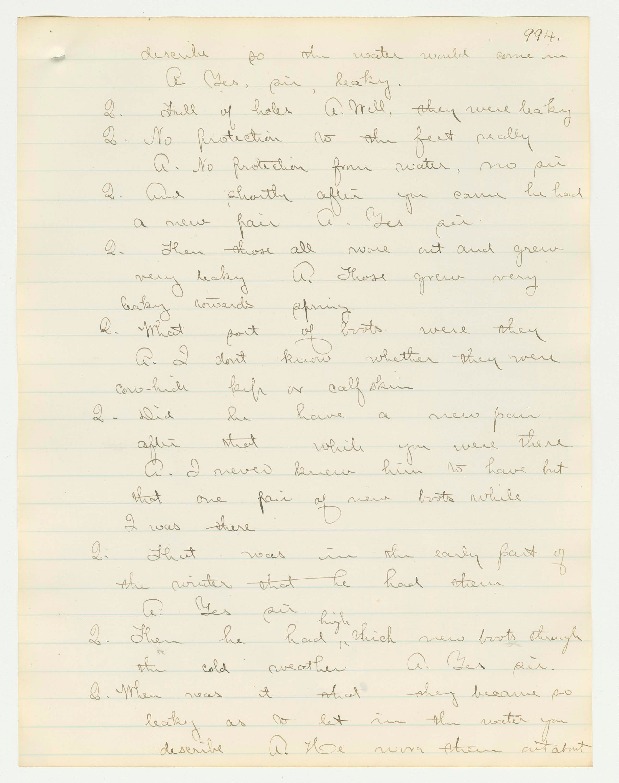 994.
describe so the water would come in
A. Yes, sir, leaky.
Q. Full of holes A. Well, they were leaky
Q. No protection to the feet really
A. No protection from water, no sir
Q. And shortly after you came he had
a new pair A. Yes sir.
Q. Then those all wore out and grew
very leaky A. Those grew very
leaky towards spring
Q. What sort of boots were they
A. I dont know whether they were
cow-hide kip or calf skin
Q. Did he have a new pair
after that while you were there
A. I never knew him to have but
that one pair of new boots while
I was there
Q. That was in the early part of
the winter that he had them
A. Yes sir
Q. Then he had high thick new boots through
the cold weather A. Yes sir.
Q. When was it that they became so
leaky as to let in the water you
describe A. He wore them out about